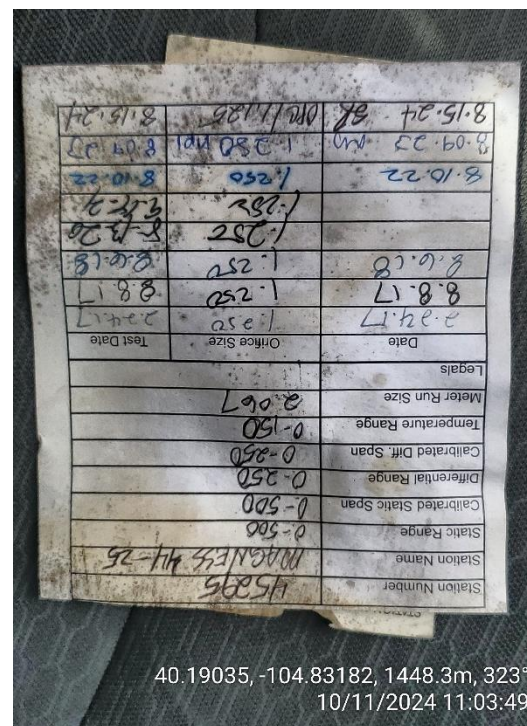 Station Number 45295
Station Name MAGNESS 44-25
Static Range 0-500
Calibrated Static Span 0-500
Differential Range 0-250
Calibrated Diff. Span 0-250
Temperature Range 0-150
Meter Run Size 2.067
Legals
Date Orifice Size Test Date
2.24.17 1.250 2.24.17
8.8.17 1.250 8.8.17
8.6.18 1.250 8.6.18
1.250
1.250
8.10.22 1.250 8.10.22
8.09.23 1.250 8.09.23
8.15.24 1.125 8.15.24
40.19035, -104.83182, 1448.3m, 323°
10/11/2024 11:03:49